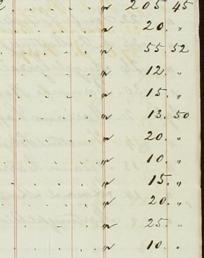 " 205 45
" 20. "
" 55 52
" 12. "
" 15. "
" 13. 50
" 20. "
" 10. "
" 15. "
" 20. "
" 25. "
" 10. "